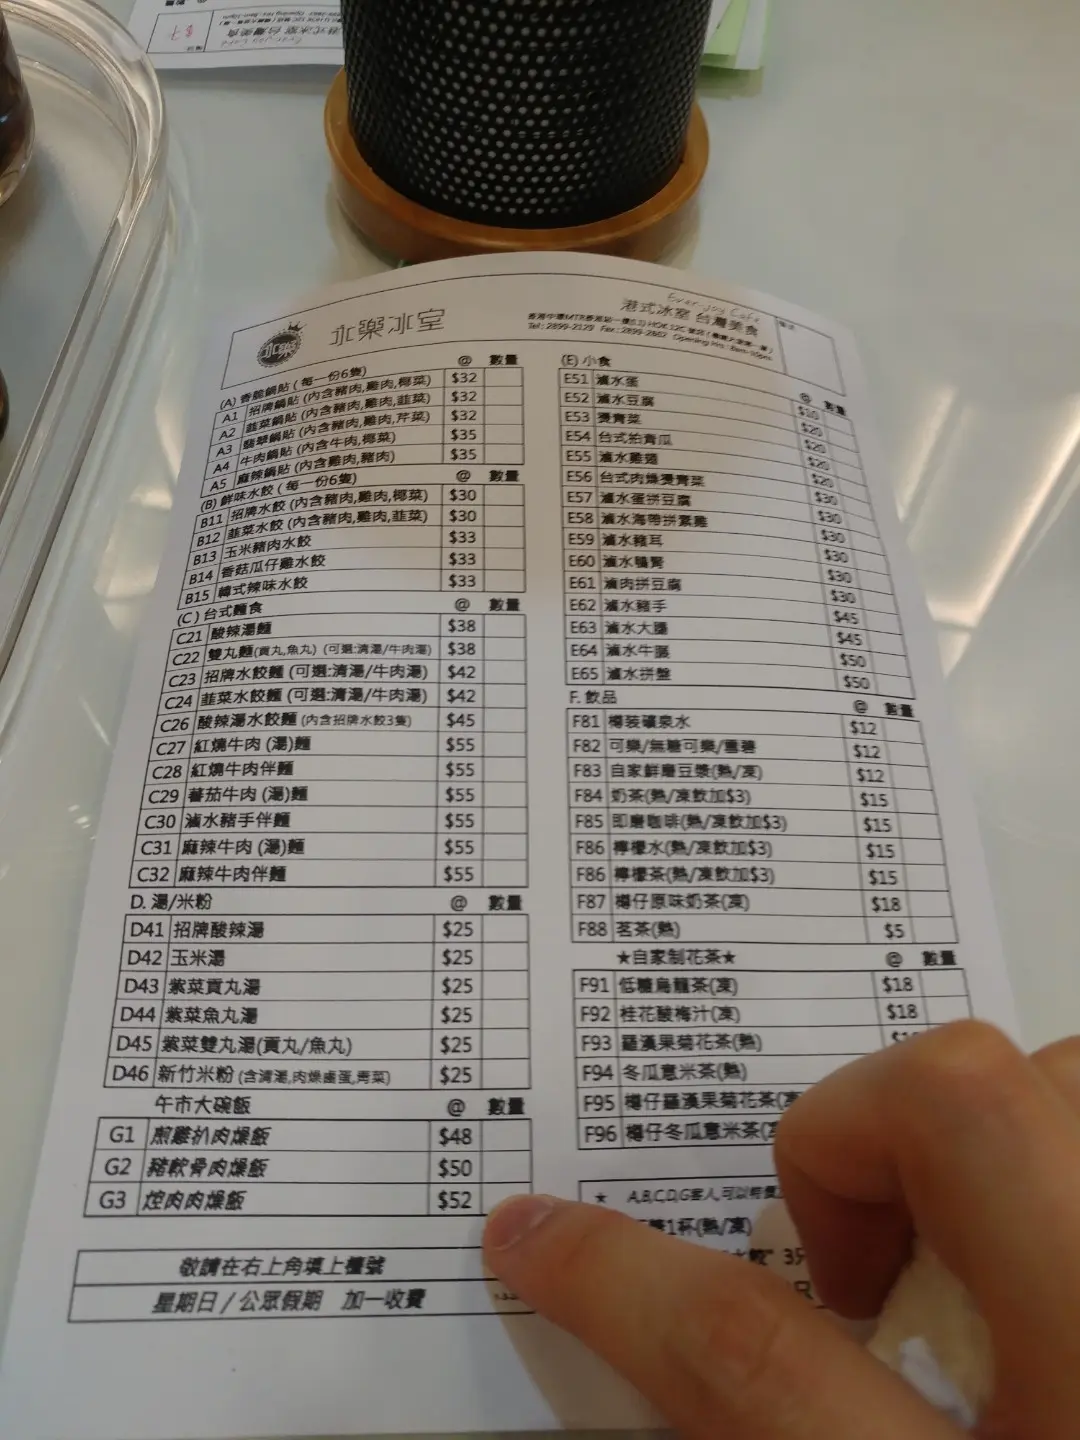 永樂冰室
Ever Joy Cafe
港式冰室 台灣美食
Tel : 2899-2129 Fax : 2899-2862 Opening Hrs : 8am-10pm
(A) 香脆鍋貼 ( 每一份6隻) @ 數量
A1 招牌鍋貼 (內含豬肉,雞肉,椰菜) $32
A2 韮菜鍋貼 (內含豬肉,雞肉,韮菜) $32
A3 翡翠鍋貼 (內含豬肉,雞肉,芹菜) $32
A4 牛肉鍋貼 (內含牛肉,椰菜) $35
A5 麻辣鍋貼 (內含雞肉,豬肉) $35
(B) 鮮味水餃 ( 每一份6隻) @ 數量
B11 招牌水餃 (內含豬肉,雞肉,椰菜) $30
B12 韮菜水餃 (內含豬肉,雞肉,韮菜) $30
B13 玉米豬肉水餃 $33
B14 香菇瓜仔雞水餃 $33
B15 韓式辣味水餃 $33
(C ) 台式麵食 @ 數量
C21 酸辣湯麵 $38
C22 雙丸麵(貢丸,魚丸) (可選:清湯/牛肉湯) $38
C23 招牌水餃麵 (可選:清湯/牛肉湯) $42
C24 韮菜水餃麵 (可選:清湯/牛肉湯) $42
C26 酸辣湯水餃麵 (內含招牌水餃3隻) $45
C27 紅燒牛肉 (湯)麵 $55
C28 紅燒牛肉伴麵 $55
C29 蕃茄牛肉 (湯)麵 $55
C30 滷水豬手伴麵 $55
C31 麻辣牛肉 (湯)麵 $55
C32 麻辣牛肉伴麵 $55
D. 湯/米粉 @ 數量
D41 招牌酸辣湯 $25
D42 玉米湯 $25
D43 紫菜貢丸湯 $25
D44 紫菜魚丸湯 $25
D45 紫菜雙丸湯(貢丸/魚丸) $25
D46 新竹米粉 (含清湯,肉燥鹵蛋,青菜) $25
午市大碗飯 @ 數量
G1 煎雞扒肉燥飯 $48
G2 豬軟骨肉燥飯 $50
G3 焢肉肉燥飯 $52
敬請在右上角填上檯號
星期日 / 公眾假期 加一收費
(E) 小食 @ 數量
E51 滷水蛋 $10
E52 滷水豆腐 $20
E53 燙青菜 $20
E54 台式拍青瓜 $20
E55 滷水雞翅 $20
E56 台式肉燥燙青菜 $30
E57 滷水蛋拼豆腐 $30
E58 滷水海帶拼素雞 $30
E59 滷水豬耳 $30
E60 滷水鴨腎 $30
E61 滷肉拼豆腐 $30
E62 滷水豬手 $45
E63 滷水大腸 $45
E64 滷水牛𦟌 $50
E65 滷水拼盤 $50
F. 飲品 @ 數量
F81 樽裝礦泉水 $12
F82 可樂/無糖可樂/雪碧 $12
F83 自家鮮磨豆漿(熱/凍) $12
F84 奶茶(熱/凍飲加$3) $15
F85 即磨咖啡(熱/凍飲加$3) $15
F86 檸檬水(熱/凍飲加$3) $15
F86 檸檬茶(熱/凍飲加$3) $15
F87 樽仔原味奶茶(凍) $18
F88 茗茶(熱) $5
★自家制花茶★ @ 數量
F91 低糖烏龍茶(凍) $18
F92 桂花酸梅汁(凍) $18
F93 羅漢果菊花茶(熱)
F94 冬瓜意米茶(熱)
F95 樽仔羅漢果菊花茶
F96 樽仔冬瓜意米茶
★ A,B,C,D,G客人,可以特價
1杯(熱/凍)